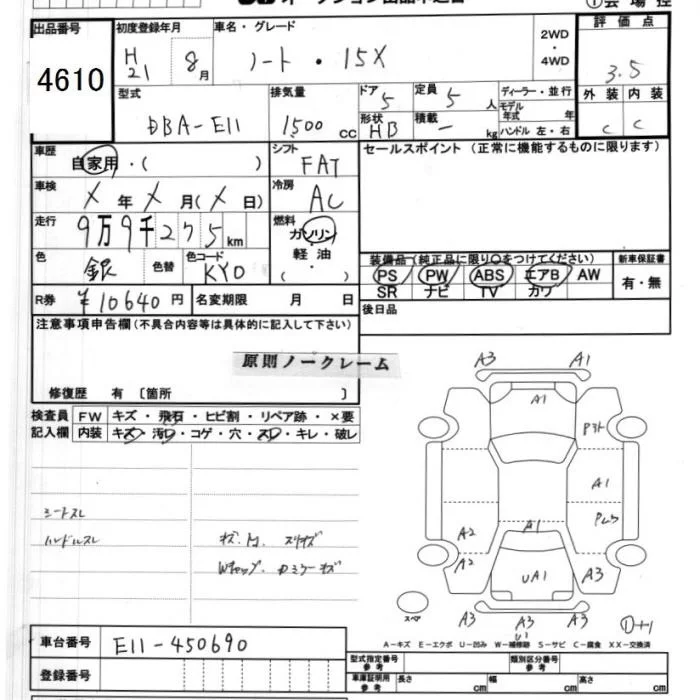 出品番号 初度登録年月 車名・グレード 2WD・4WD 評価点
4610 H21 8月 ノート・15X 3.5
型式 排気量 ドア 5 定員 5人 ディーラー・並行 外装 内装
DBA-E11 1500cc 形状 HB 積載 ー kg モデル年式 年 ハンドル 左・右 C C
車歴 自家用・( ) シフト FAT セールスポイント(正常に機能するものに限ります)
車検 X年X月(X日) 冷房 AC
走行 9万9千275km 燃料 ガソリン・軽油・( )
色 銀 色替 色コード KY0 装備品(純正品に限り○をつけてください) 新車保証書
PS PW ABS エアB AW 有・無
SR ナビ TV カワ
R券 ¥10640円 名変期限 月 日 後日品
注意事項申告欄(不具合内容等は具体的に記入して下さい)
原則ノークレーム
修復歴 有 〔箇所 〕
検査員記入欄 FW キズ・飛石・ヒビ割・リペア跡・×要
内装 キズ・汚レ・コゲ・穴・スレ・キレ・破レ
シートスレ
ハンドルスレ
A3 A1
A1
A1
A2 A1
A2 UA1 A3
スペア A3 A3 A3
A-キズ E-エクボ U-凹み W-補修跡 S-サビ C-腐食 XX-交換済
車台番号 E11-450690 型式指定番号 参考 類別区分番号 参考
登録番号 車庫証明用 参考 長さ cm 幅 cm 高さ cm